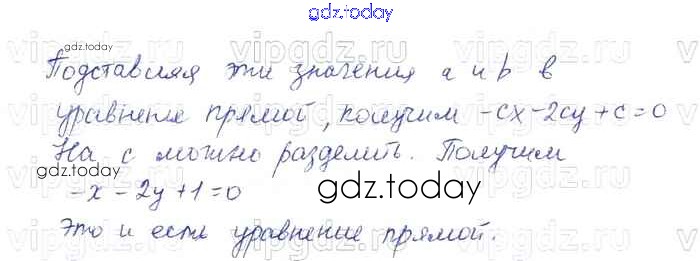 gdz.today
gdz.today
Подставляя эти значения a и b в
уравнение прямой, получим -cx-2cy+c=0
На c можно разделить. Получим
-x-2y+1=0
gdz.today
Это и есть уравнение прямой.